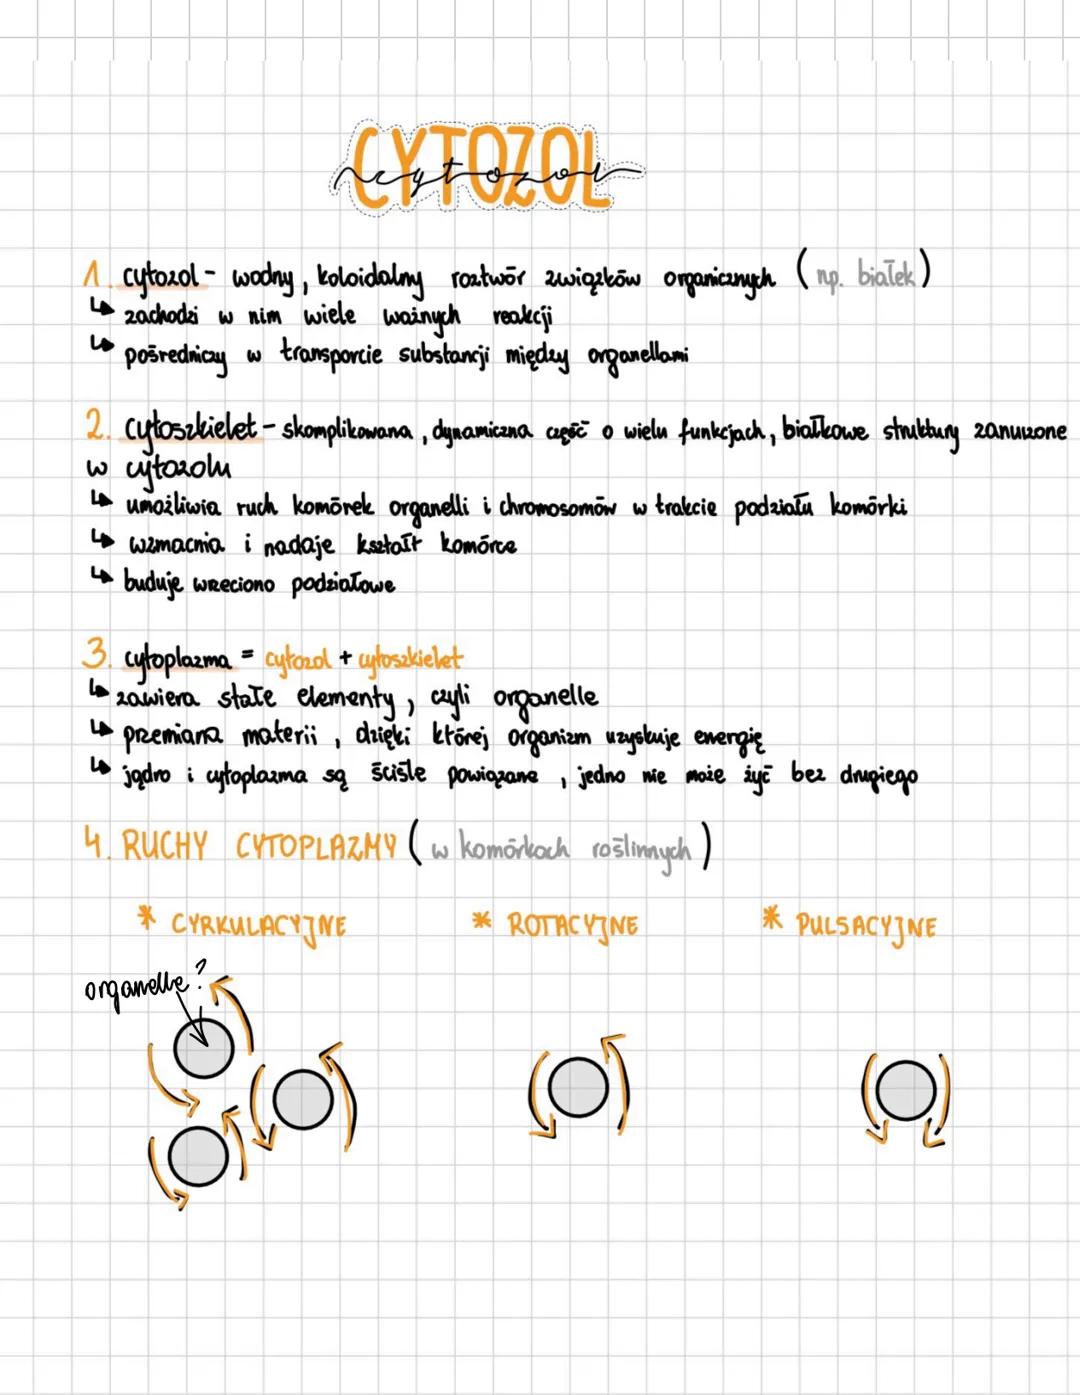 CYTOZOL
cytozol
1. cytozol - wodny, koloidalny roztwór związków organicznych (np. białek)
↳ zachodzi w nim wiele ważnych reakcji
↳ pośredniczy w transporcie substancji między organellami
2. cytoszkielet - skomplikowana, dynamiczna część o wielu funkcjach, białkowe struktury zanurzone
w cytozolu
↳ umożliwia ruch komórek organelli i chromosomów w trakcie podziału komórki
↳ wzmacnia i nadaje kształt komórce
↳ buduje wrzeciono podziałowe
3. cytoplazma = cytozol + cytoszkielet
↳ zawiera stałe elementy, czyli organelle
↳ przemiana materii, dzięki której organizm uzyskuje energię
↳ jądro i cytoplazma są ściśle powiązane, jedno nie może żyć bez drugiego
4. RUCHY CYTOPLAZMY (w komórkach roślinnych)
* CYRKULACYJNE * ROTACYJNE * PULSACYJNE
organelle?